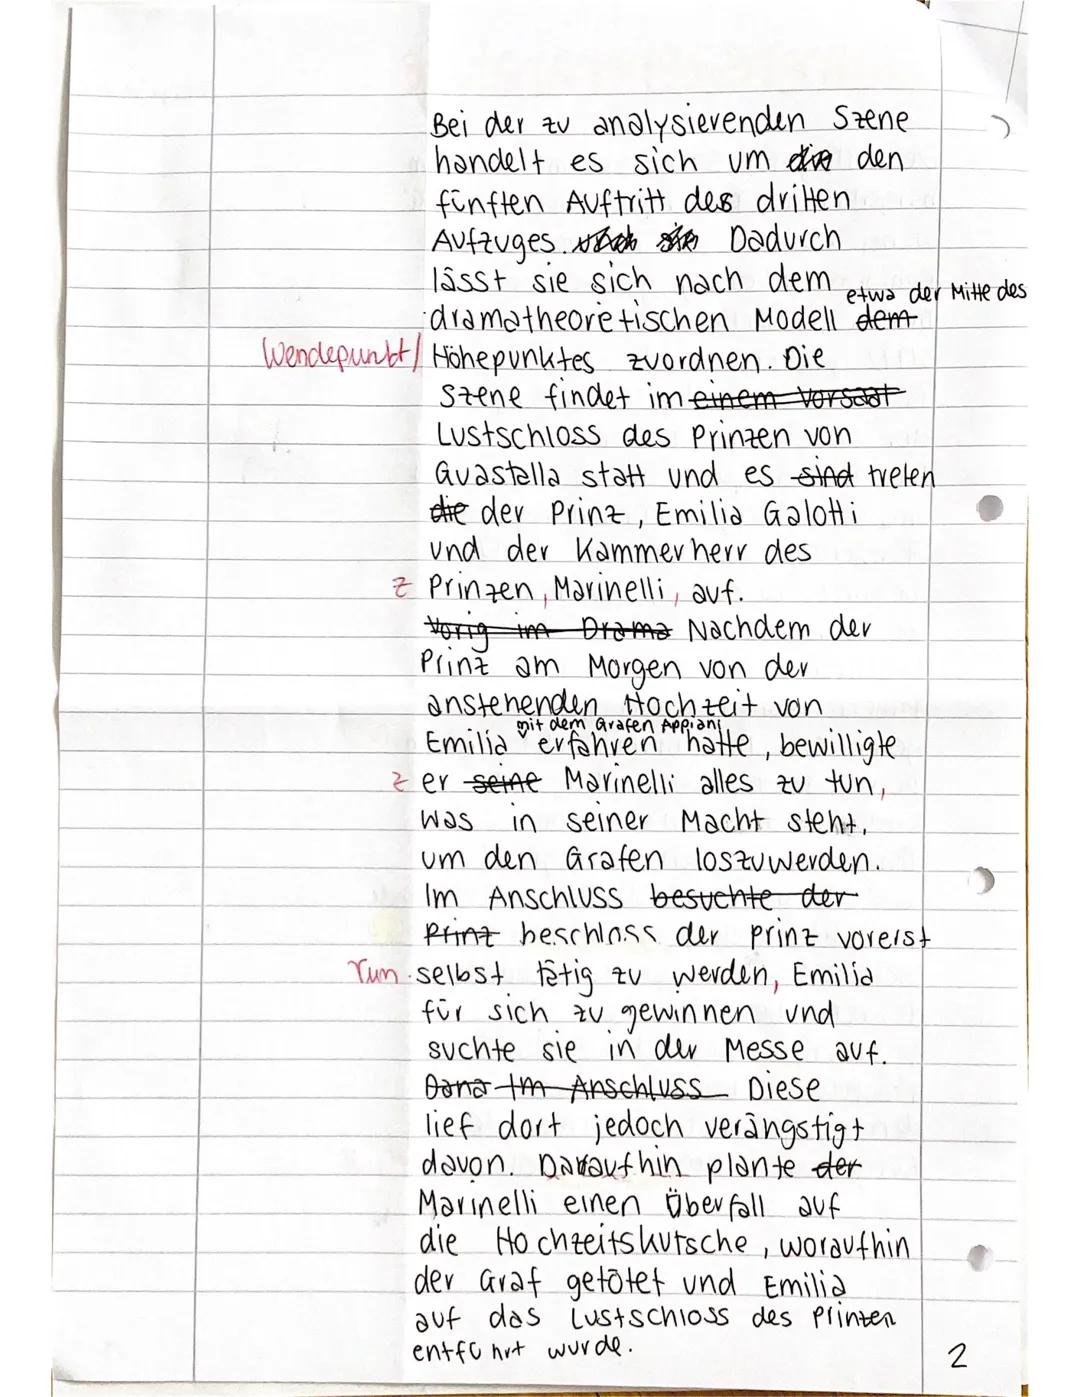 Bei der zu analysierenden Szene
handelt es sich um die den
fünften Auftritt des dritten
Aufzuges. Dadurch
lässt sie sich nach dem
etwa der Mitte des
dramatheoretischen Modell dem
Wendepunkt/ Höhepunktes zuordnen. Die
Szene findet im einem Vorsaat
Lustschloss des Prinzen von
Guastalla statt und es sind treten
die der Prinz, Emilia Galotti
und der Kammerherr des
Z Prinzen, Marinelli, auf.
Vorig im Drama Nachdem der
Prinz am Morgen von der
anstehenden Hochzeit von
mit dem Grafen Appiani
Emilia erfahren hatte, bewilligte
Z er seine Marinelli alles zu tun,
was in seiner Macht steht,
um den Grafen loszuwerden.
Im Anschluss besuchte der
Prinz beschloss der Prinz vorerst
selbst tätig zu werden, Emilia
für sich zu gewinnen und
suchte sie in der Messe auf.
Dana Im Anschluss Diese
lief dort jedoch verängstigt
davon. Daraufhin plante der
Marinelli einen Überfall auf
die Hochzeitskutsche, woraufhin
der Graf getötet und Emilia
auf das Lustschloss des Prinzen
entführt wurde.
2